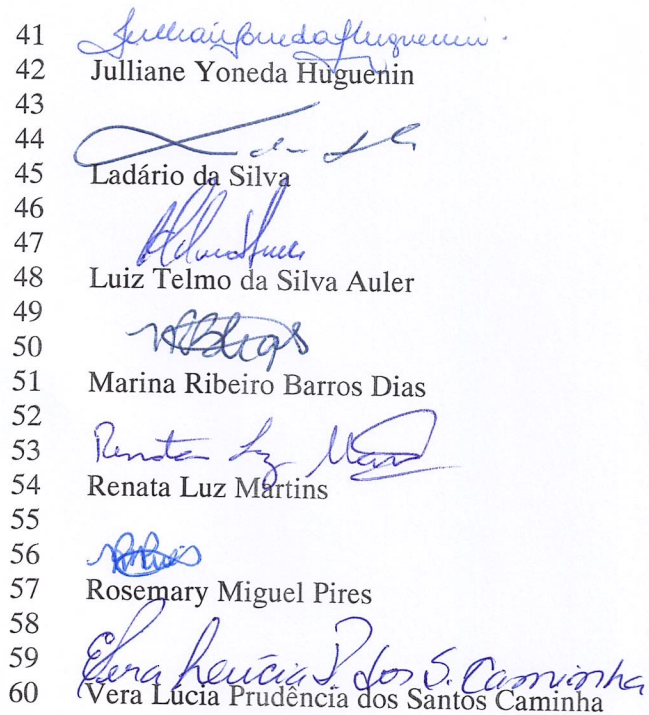 41 Julliane Yoneda Huguenin
42 Julliane Yoneda Huguenin
43
44 da Silva
45 Ladário da Silva
46
47
48 Luiz Telmo da Silva Auler
49
50
51 Marina Ribeiro Barros Dias
52
53 Renata Luz Martins
54 Renata Luz Martins
55
56
57 Rosemary Miguel Pires
58
59 Vera Lúcia P. dos S. Caminha
60 Vera Lúcia Prudência dos Santos Caminha